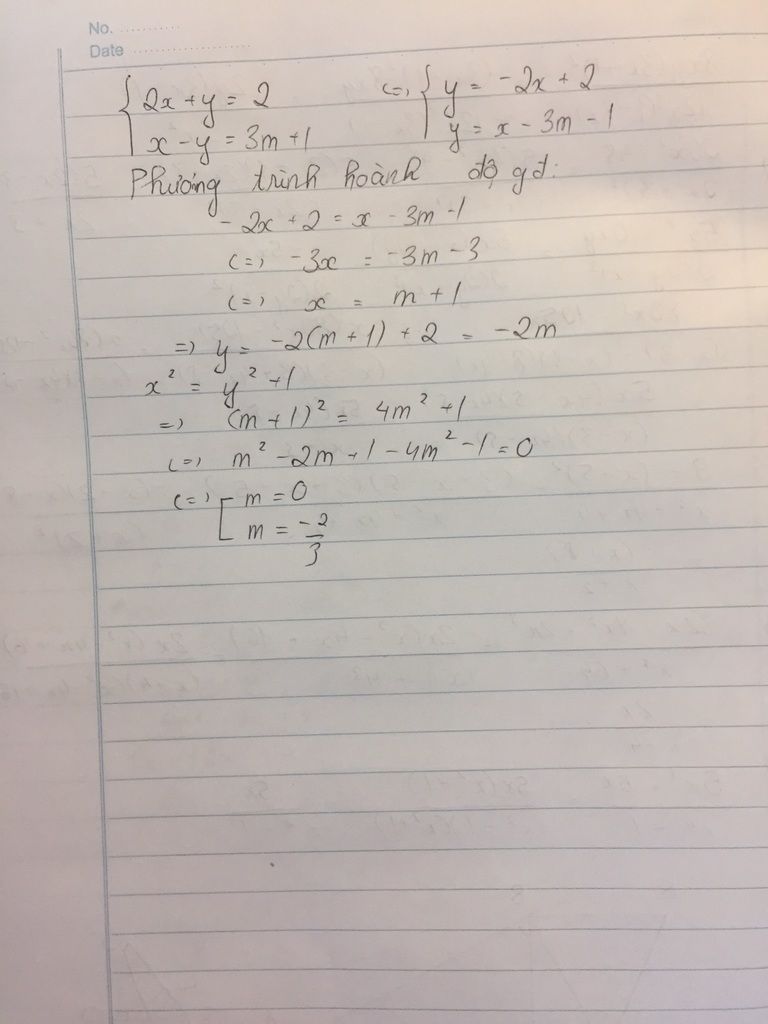 No. ............
Date ........................
{ 2x + y = 2 <=> { y = -2x + 2
x - y = 3m + 1 y = x - 3m - 1
Phương trình hoành độ gđ:
-2x + 2 = x - 3m - 1
<=> -3x = -3m - 3
<=> x = m + 1
=> y = -2(m + 1) + 2 = -2m
x² = y² + 1
=> (m + 1)² = 4m² + 1
<=> m² - 2m + 1 - 4m² - 1 = 0
<=> [ m = 0
m = -2/3